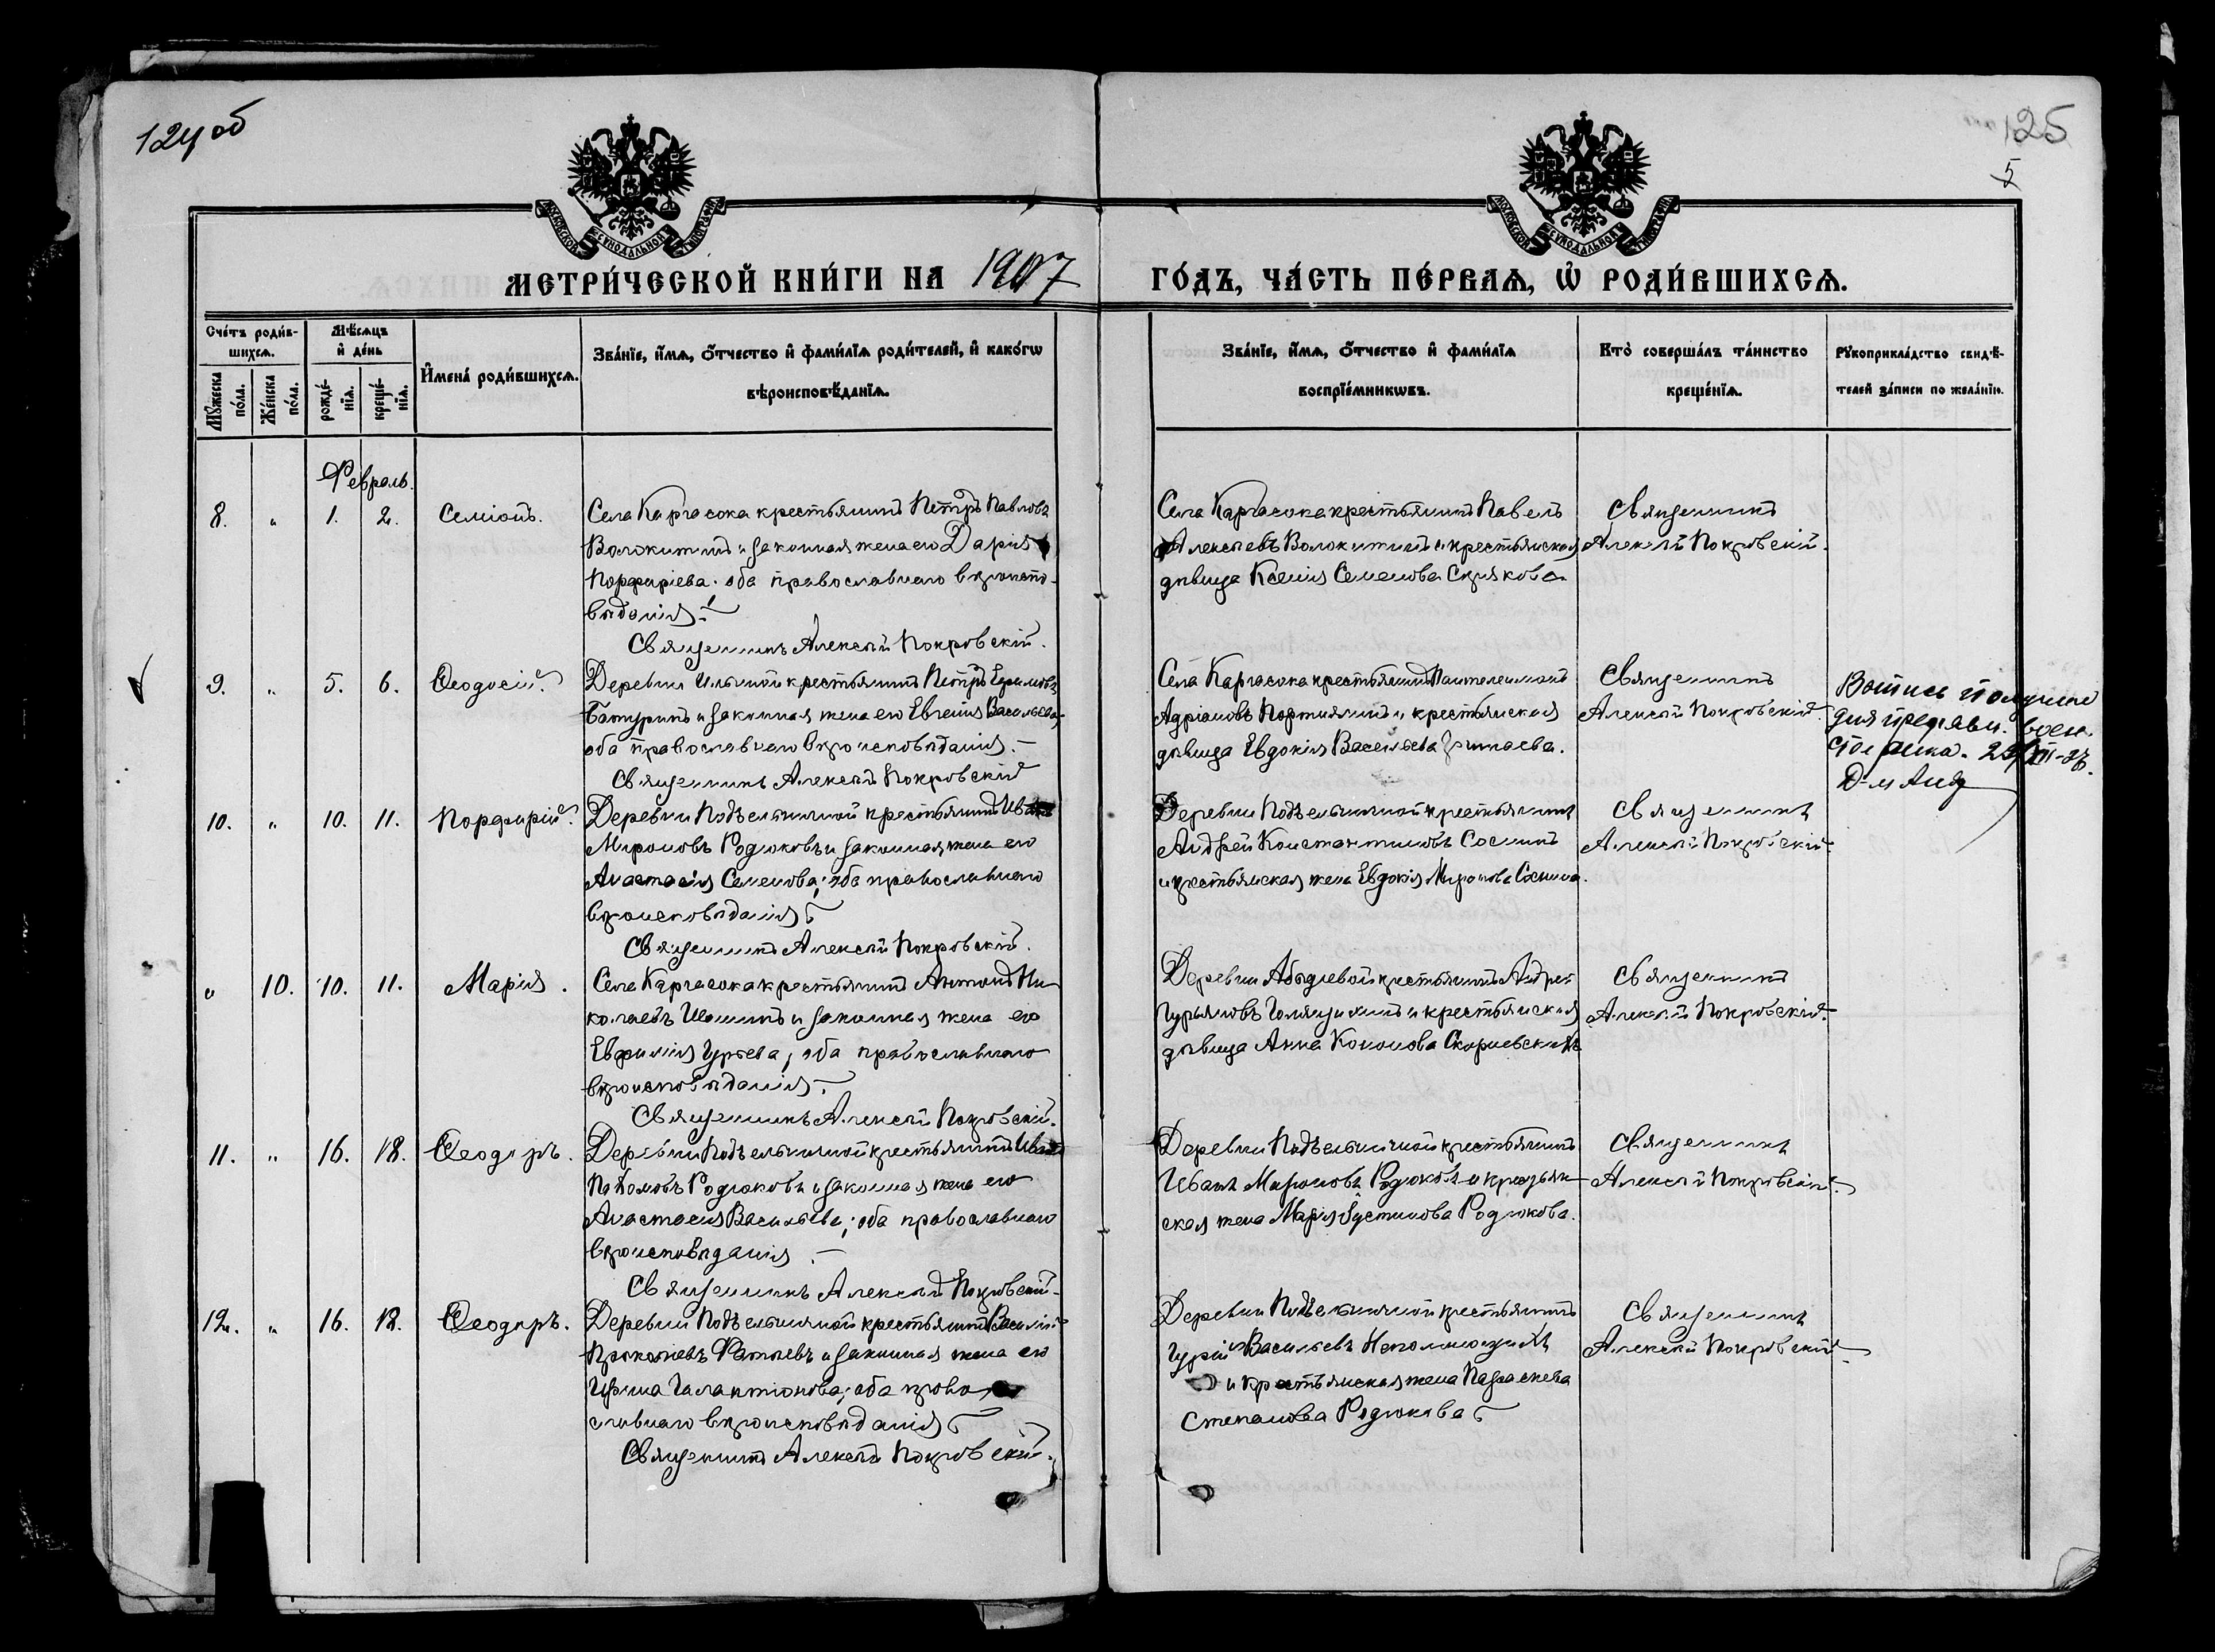 124 об
125
5
МОСКОВСКОЙ СѴНОДАЛЬНОЙ ТИПОГРАФІИ
МОСКОВСКОЙ СѴНОДАЛЬНОЙ ТИПОГРАФІИ
МЕТРИ́ЧЕСКОЙ КНИ́ГИ НА 1907 ГО́ДЪ, ЧА́СТЬ ПЕ́РВАѦ, Ѡ РОДИ́ВШИХСѦ.
Сче́тъ роди́в-
шихсѧ.
Мѣ́сѧцъ
и҆ де́нь
Мꙋ́жеска по́ла.
Же́нска по́ла.
рожде́-
нїѧ.
креще́-
нїѧ.
И҆мена̀ роди́вшихсѧ.
Зва́нїе, и҆́мѧ, ѻ҆́тчество и҆ фами́лїѧ роди́телей, и҆ како́гѡ
вѣроисповѣ́данїѧ.
Зва́нїе, и҆́мѧ, ѻ҆́тчество и҆ фами́лїѧ
воспрїе́мникѡвъ.
Кто̀ соверша́лъ та́инство
креще́нїѧ.
Рꙋкоприкла́дство свидѣ́-
телей за́писи по жела́нїю.
Февраль.
8. " 1. 2. Семіонъ.
Села Каргасока крестьянинъ Петръ Павловъ
Волокитинъ и законная жена его Дарія
Порфиріева. оба православнаго вѣроиспо-
вѣданія.
Священникъ Алексѣй Покровскій.
Села Каргасока крестьянинъ Павелъ
Алексѣевъ Волокитинъ и крестьянская
дѣвица Ксенія Семенова
Священникъ
Алексѣй Покровскій.
9. " 5. 6. Ѳеодосій.
Деревни крестьянинъ Петръ
Батуринъ и законная жена его Евгенія Васильева,
оба православнаго вѣроисповѣданія.
Священникъ Алексѣй Покровскій
Села Каргасока крестьянинъ Пантелеимонъ
Адріановъ и крестьянская
дѣвица Евдокія Васильева
Священникъ
Алексѣй Покровскій.
10. " 10. 11. Порфирій.
Деревни Подъельничной крестьянинъ Иванъ
Мироновъ Родюковъ и законная жена его
Анастасія Семенова; оба православнаго
вѣроисповѣданія
Священникъ Алексѣй Покровскій.
Деревни Подъельничной крестьянинъ
Андрей Константиновъ Сосни­нъ
и крестьянская жена Евдокія Миронова Соснина.
Священникъ
Алексѣй Покровскій.
" 10. 10. 11. Марія.
Села Каргасока крестьянинъ Антонъ Ни-
колаевъ и законная жена его
Евфимія Гурьева; оба православнаго
вѣроисповѣданія.
Священникъ Алексѣй Покровскій.
Деревни крестьянинъ Андрей
Гурьяновъ и крестьянская
дѣвица Анна Кононова
Священникъ
Алексѣй Покровскій.
11. " 16. 18. Ѳеодоръ.
Деревни Подъельничной крестьянинъ Иванъ
Родюковъ и законная жена его
Анастасія Васильева; оба православнаго
вѣроисповѣданія.
Священникъ Алексѣй Покровскій.
Деревни Подъельничной крестьянинъ
Иванъ Мироновъ Родюковъ и крестьян-
ская жена Марія Родюкова.
Священникъ
Алексѣй Покровскій.
12. " 16. 18. Ѳеодоръ.
Деревни Подъельничной крестьянинъ Василій
Прокопіевъ и законная жена его
Галактіонова; оба право-
славнаго вѣроисповѣданія
Священникъ Алексѣй Покровскій.
Деревни Подъельничной крестьянинъ
Гурій Васильевъ
и крестьянская жена Параскева
Степанова Родюкова
Священникъ
Алексѣй Покровскій.